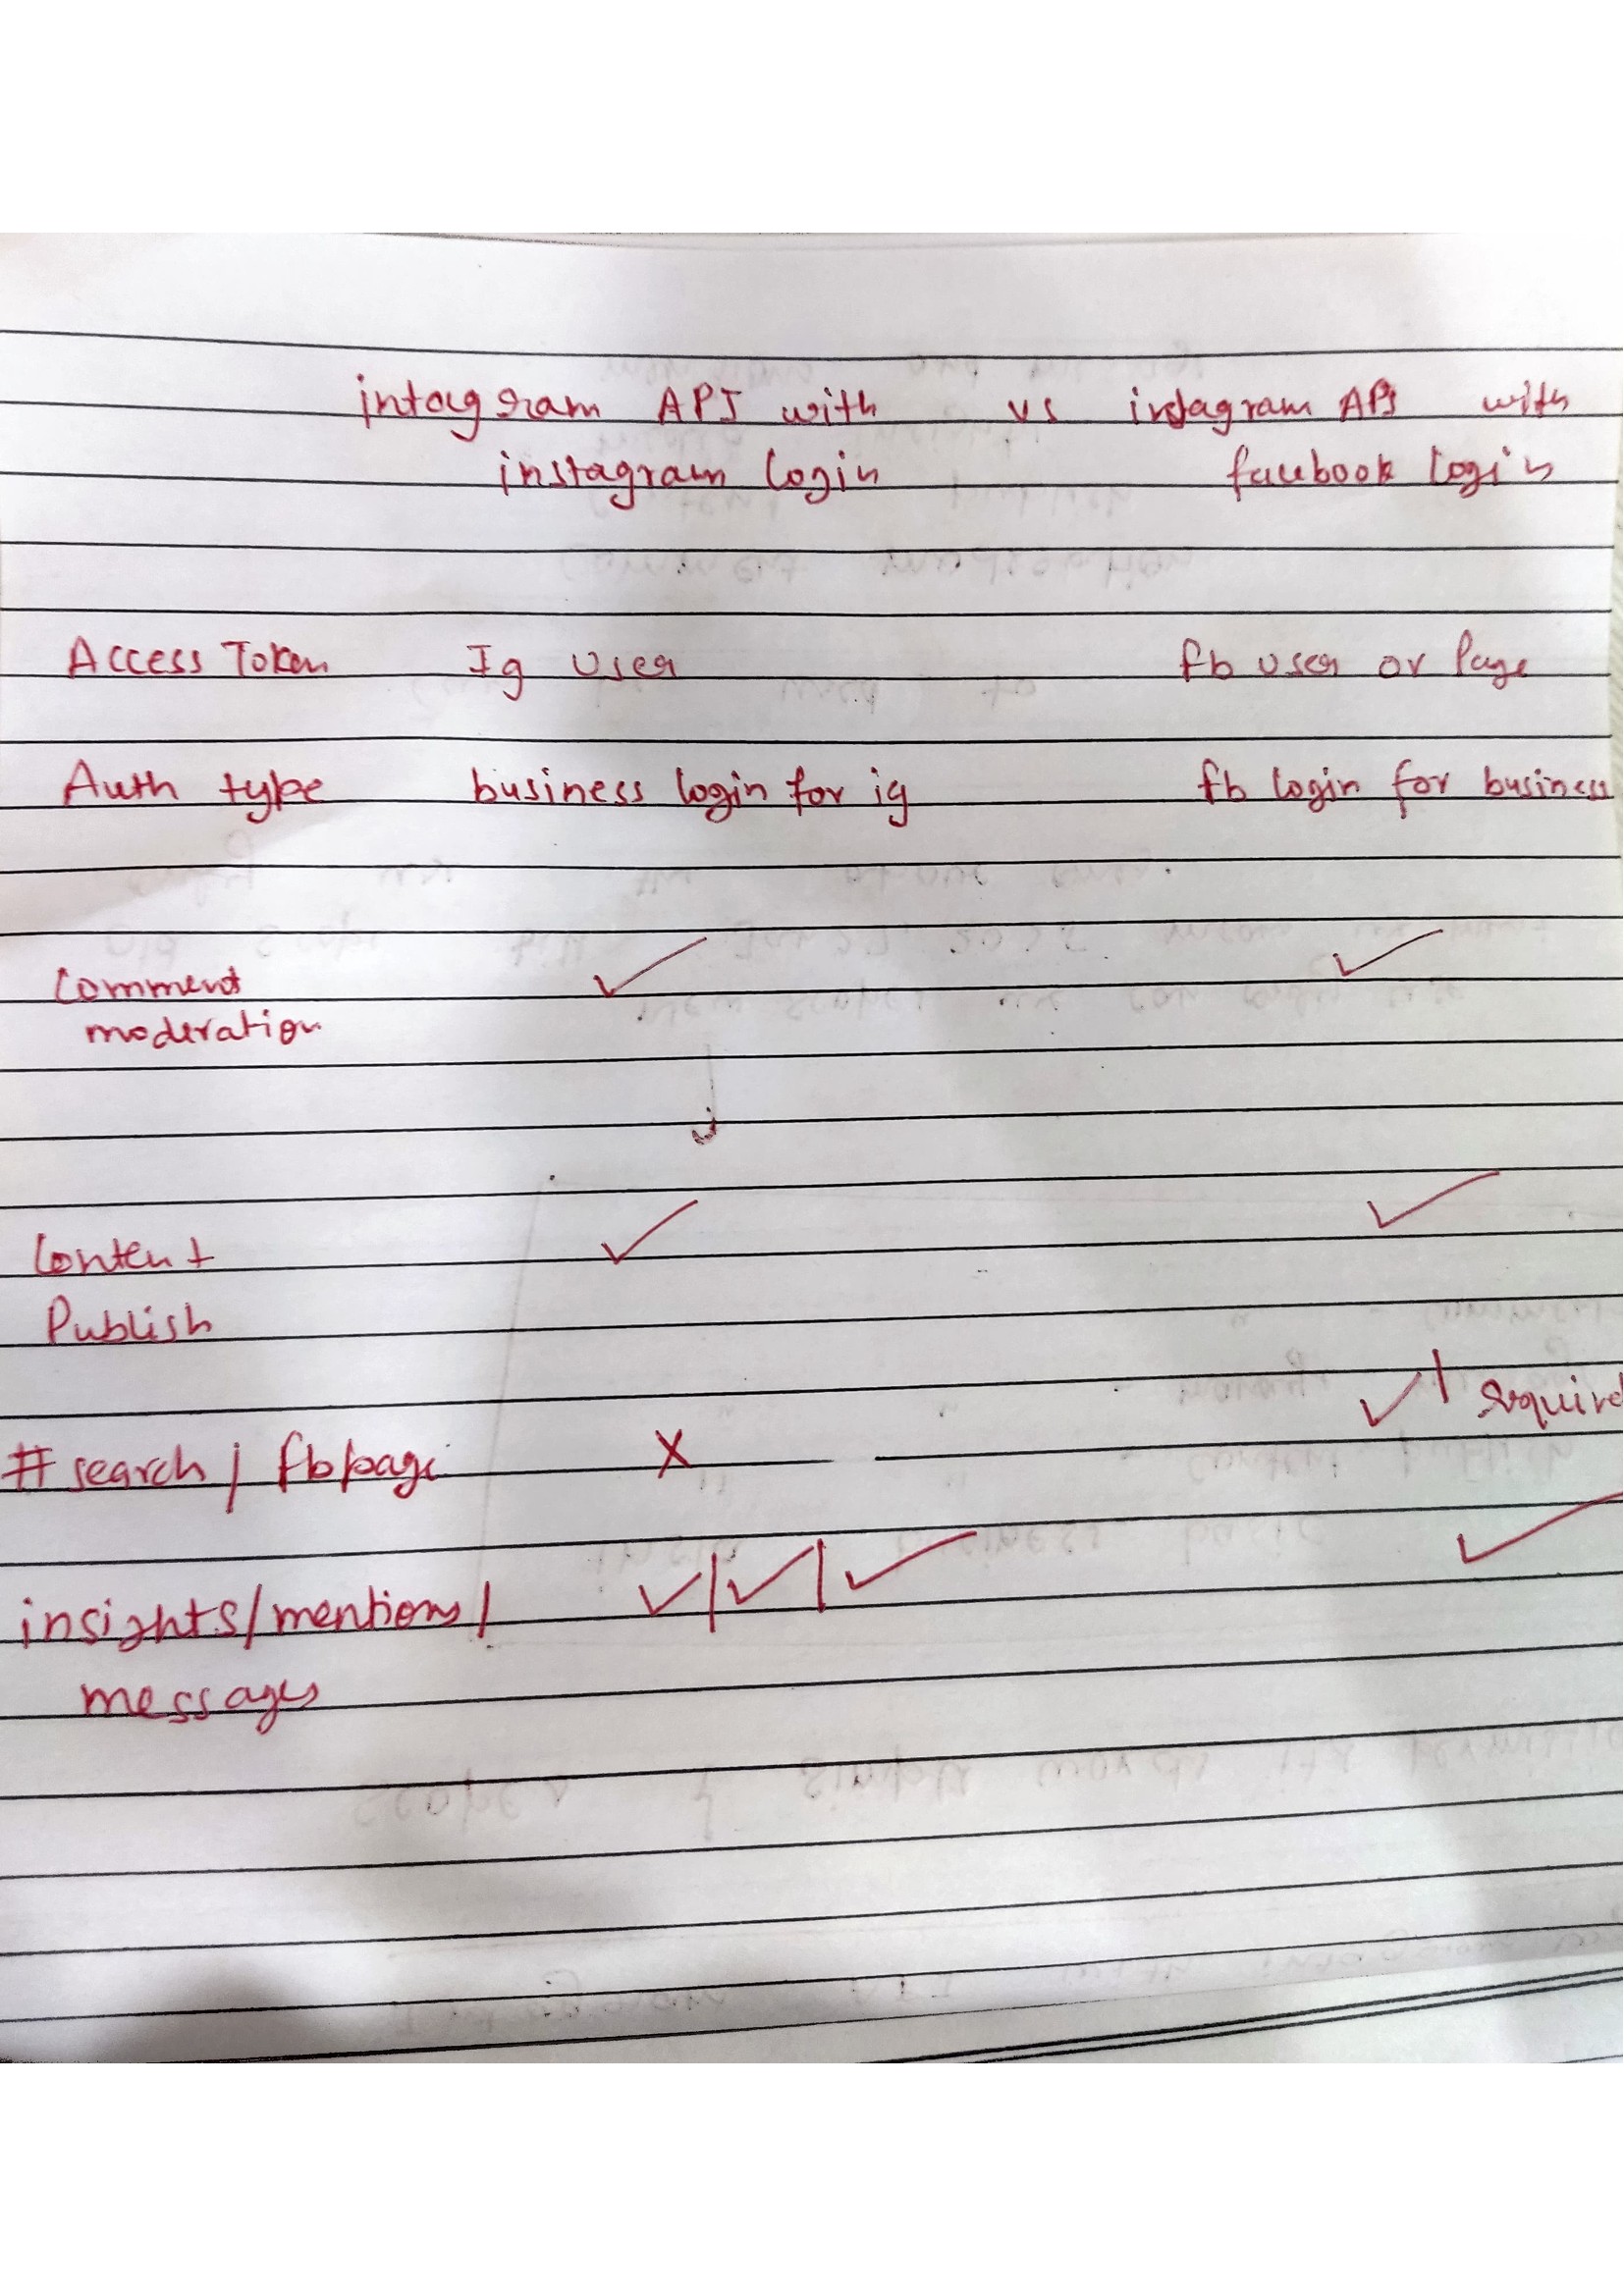 intagram API with vs instagram API with
instagram login facebook login
Access Token Ig User fb user or Page
Auth type business login for ig fb login for business
Comment ✓ ✓
moderation
Content ✓ ✓
Publish
✓ | require
# search / fb page X
insights/mentions/ ✓|✓|✓ ✓
messages